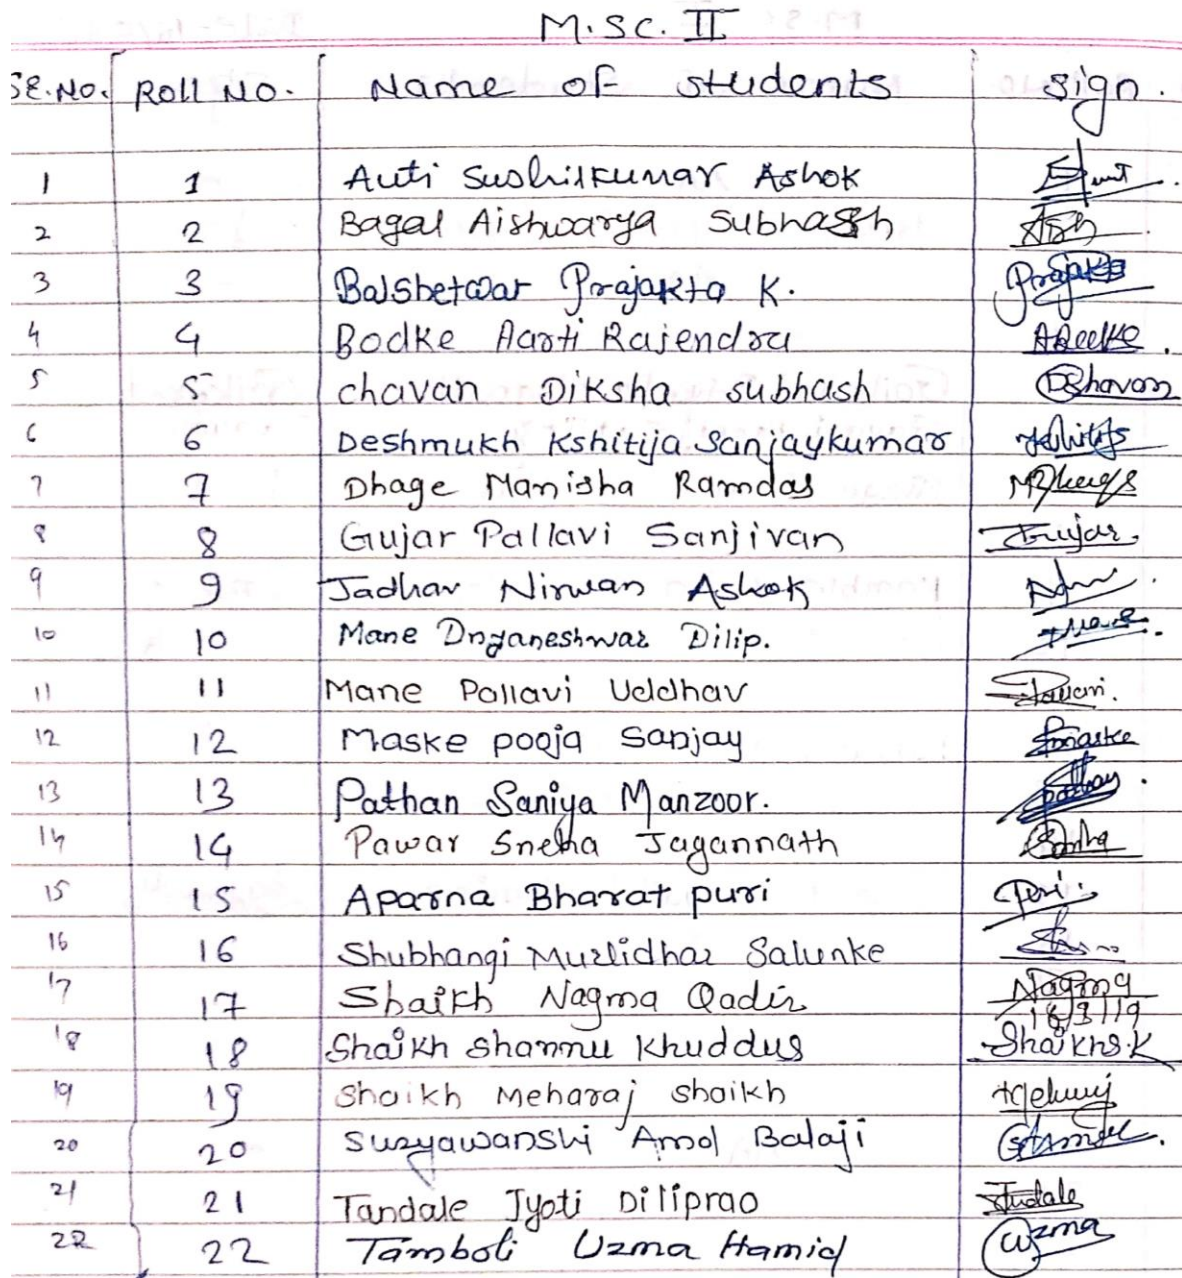 M.SC. II
SE.No. Roll No. Name of students sign.
1 1 Auti Sushilkumar Ashok
2 2 Bagal Aishwarya Subhash Ash
3 3 Balshetwar Prajakta K. Prajakta
4 4 Bodke Aarti Rajendra
5 5 chavan Diksha subhash DShavan
6 6 Deshmukh Kshitija Sanjaykumar Kshitija
7 7 Dhage Manisha Ramdas
8 8 Gujar Pallavi Sanjivan Gujar.
9 9 Jadhav Nirwan Ashok
10 10 Mane Dnyaneshwar Dilip.
11 11 Mane Pallavi Uddhav
12 12 Maske pooja Sanjay Pmaske
13 13 Pathan Saniya Manzoor.
14 14 Pawar Sneha Jagannath
15 15 Aparna Bharat puri puri
16 16 Shubhangi Murlidhar Salunke
17 17 Shaikh Nagma Qadir Nagma
18/3/19
18 18 Shaikh shammu Khuddus Shaikhs.K
19 19 Shaikh Meharaj shaikh
20 20 Suryawanshi Amol Balaji
21 21 Tandale Jyoti Diliprao
22 22 Tamboli Uzma Hamid Uzma